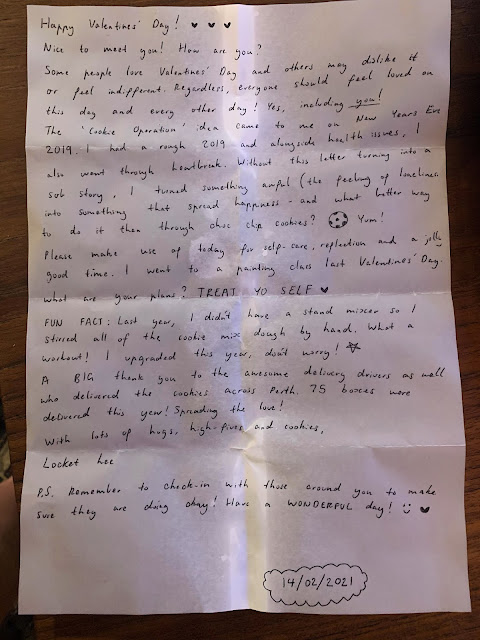 Happy Valentines' Day! ♥ ♥ ♥
Nice to meet you! How are you?
Some people love Valentines' Day and others may dislike it
or feel indifferent. Regardless, everyone should feel loved on
this day and every other day! Yes, including you!
The 'Cookie Operation' idea came to me on New Years Eve
2019. I had a rough 2019 and alongside health issues, I
also went through heartbreak. Without this letter turning into a
sob story, I turned something awful (the feeling of loneliness
into something that spread happiness - and what better way
to do it then through choc chip cookies? Yum!
Please make use of today for self-care, reflection and a jolly
good time. I went to a painting class last Valentines' Day.
What are your plans? TREAT YO SELF ♥
FUN FACT: Last year, I didn't have a stand mixer so I
stirred all of the cookie mix dough by hand. What a
workout! I upgraded this year, don't worry! ☆
A BIG thank you to the awesome delivery drivers as well
who delivered the cookies across Perth. 75 boxes were
delivered this year! Spreading the love!
With lots of hugs, high-fives and cookies,
Locket
P.S. Remember to check-in with those around you to make
sure they are doing okay! Have a WONDERFUL day! ☺ ♥
14/02/2021